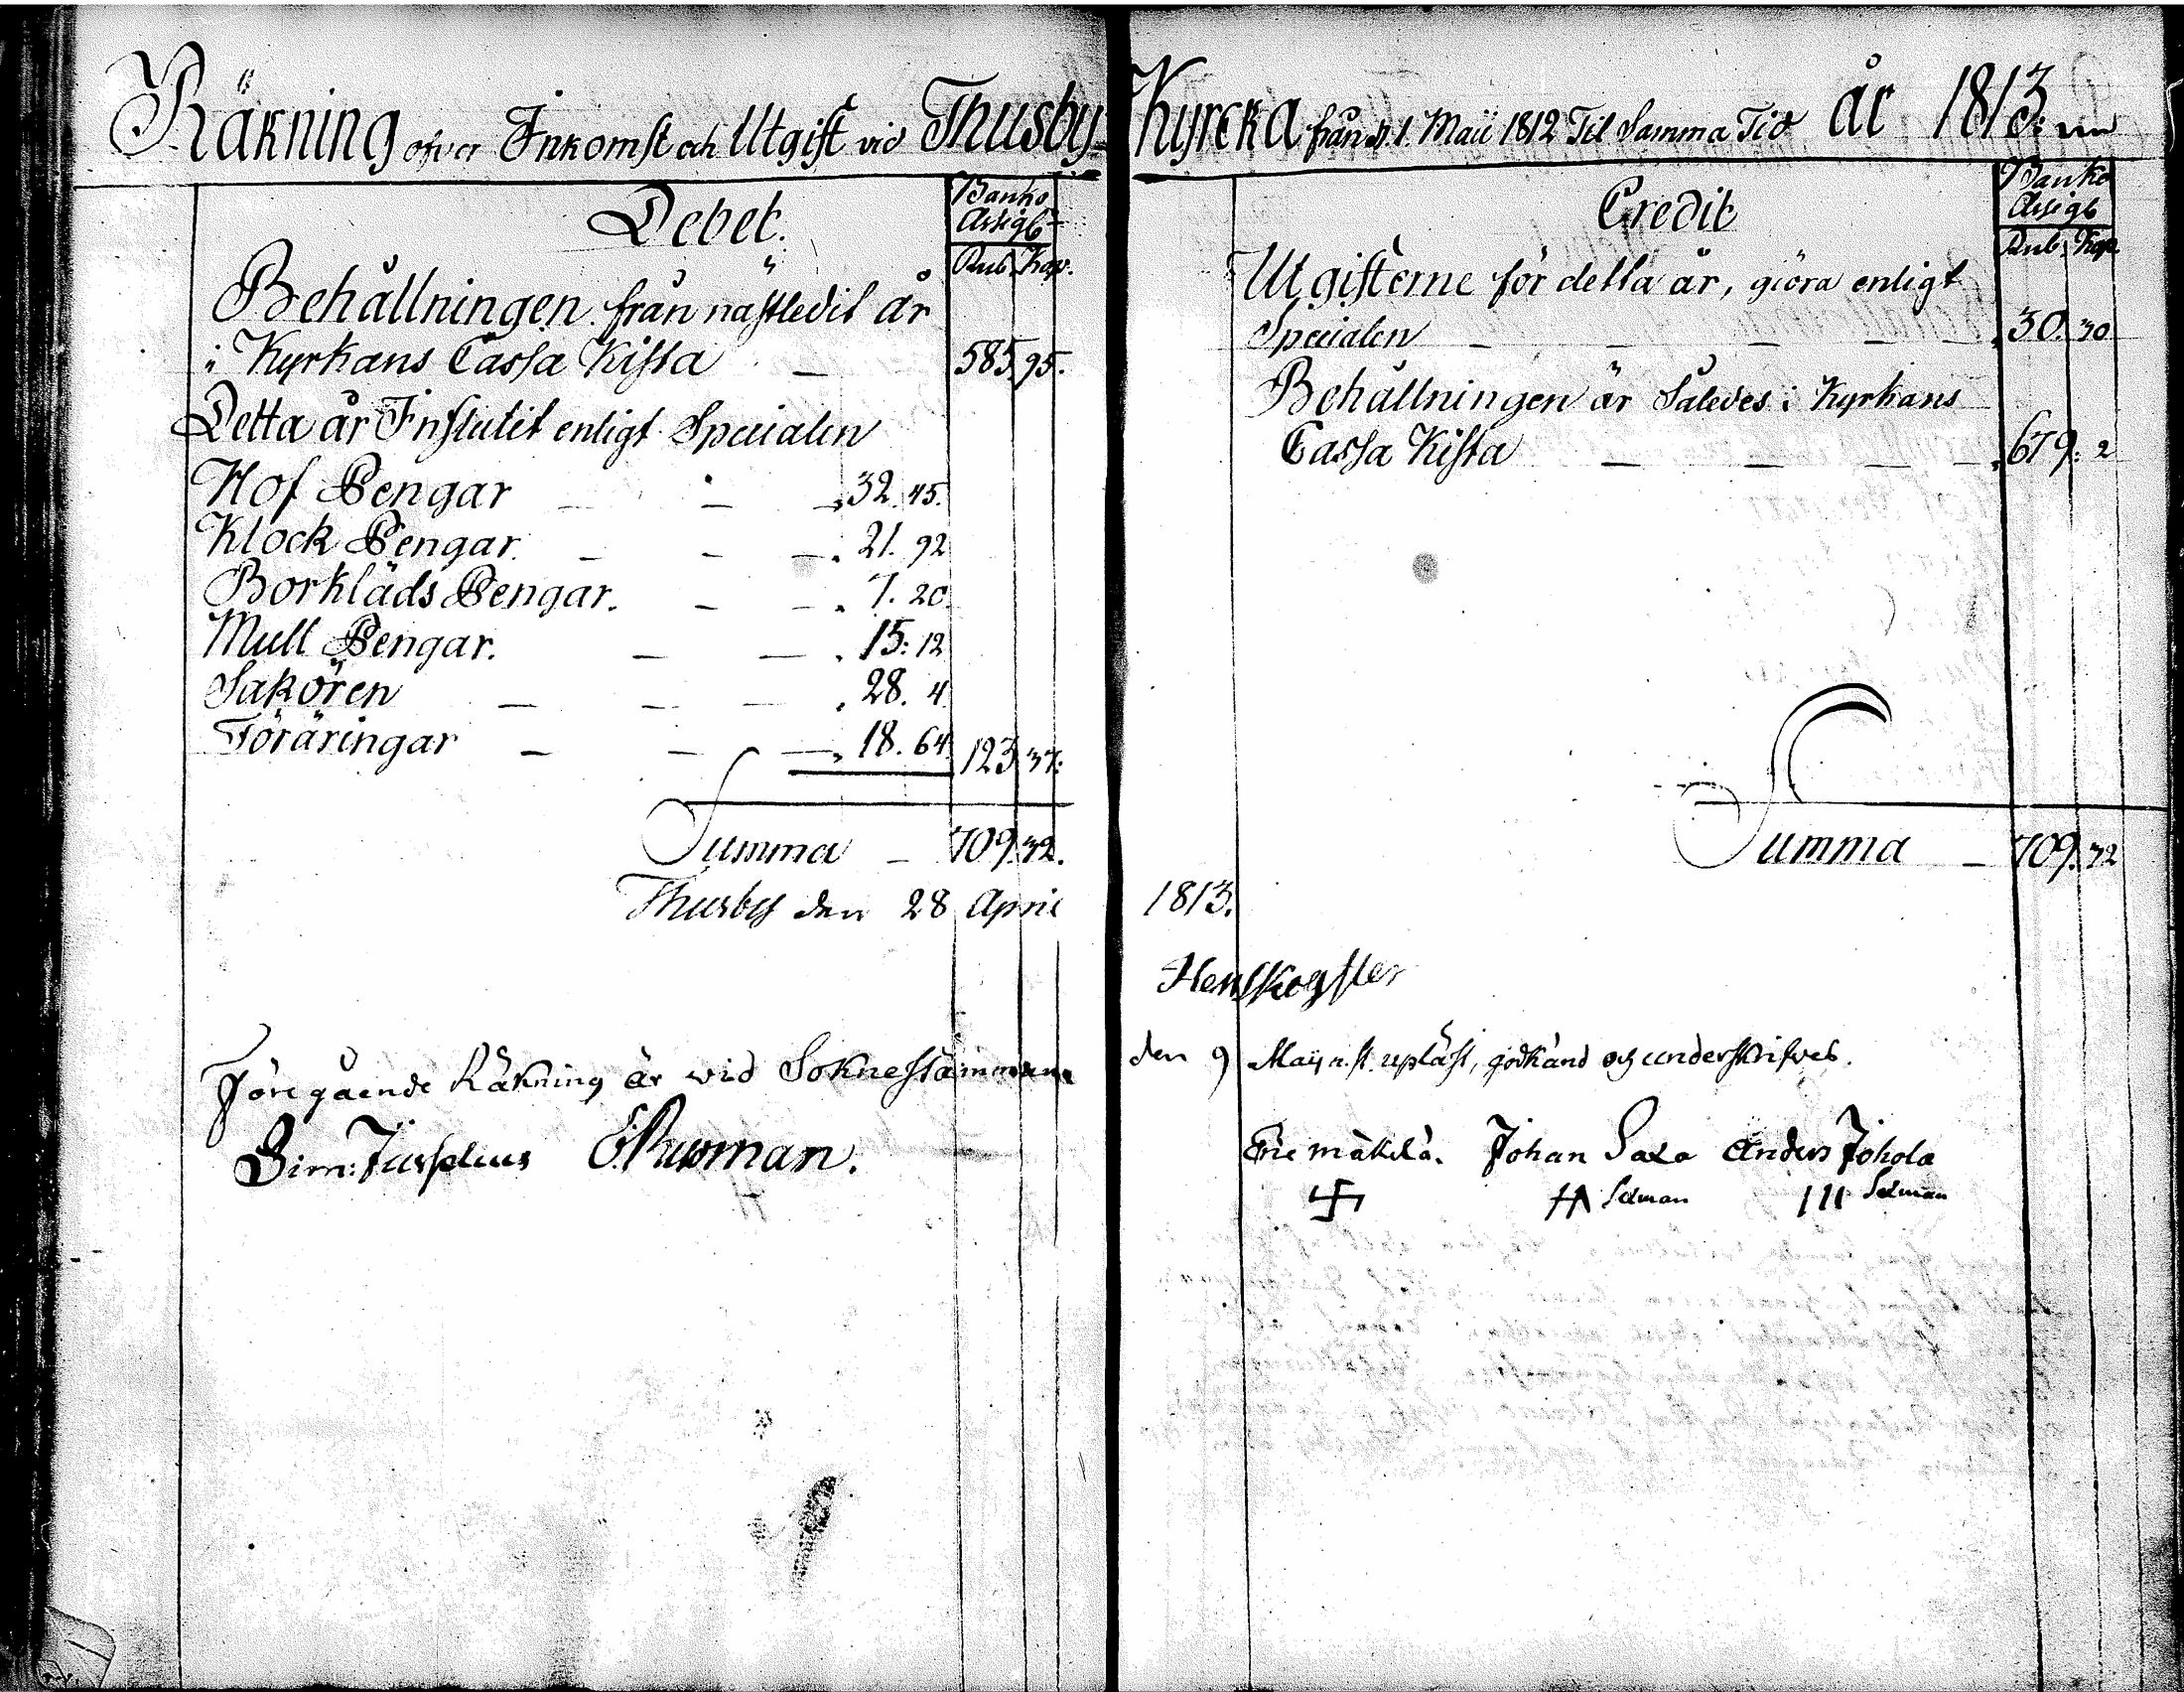 Räkning öfver Inkomst och Utgift vid Thusby Kyrcka från d. 1. Maii 1812 Til Samma Tid år 1813.
Debet.
Banko Assigb
Rub. Kop.
Behållningen från nästledit år
i Kyrkans Cassa Kista — 585. 95.
Detta år Influtit enligt Specialen
Hof Pengar — — 32. 45.
Klock Pengar. — — 21. 92
Borkläds Pengar. — — 7. 20
Mull Pengar. — — 15: 12
Saköören — — — 28. 4
Föräringar — — — 18. 64 123. 37:
Summa — 709. 32.
Thusby den 28 April 1813.
Credit
Banko Assigb
Rub. Kop
Utgifterne för detta år, giöra enligt
Specialen — — — — — 30. 30
Behållningen är Således i Kyrkans
Cassa Kista — — — — 679. 2
Summa — 709. 32
Föregående Räkning är wid Soknestämman den 9 Maij n. st. upläst, godkänd och underskrifves.
Eric mäkelä. Johan Saxa Anders Johola
卐 HA Sexman III Sexman